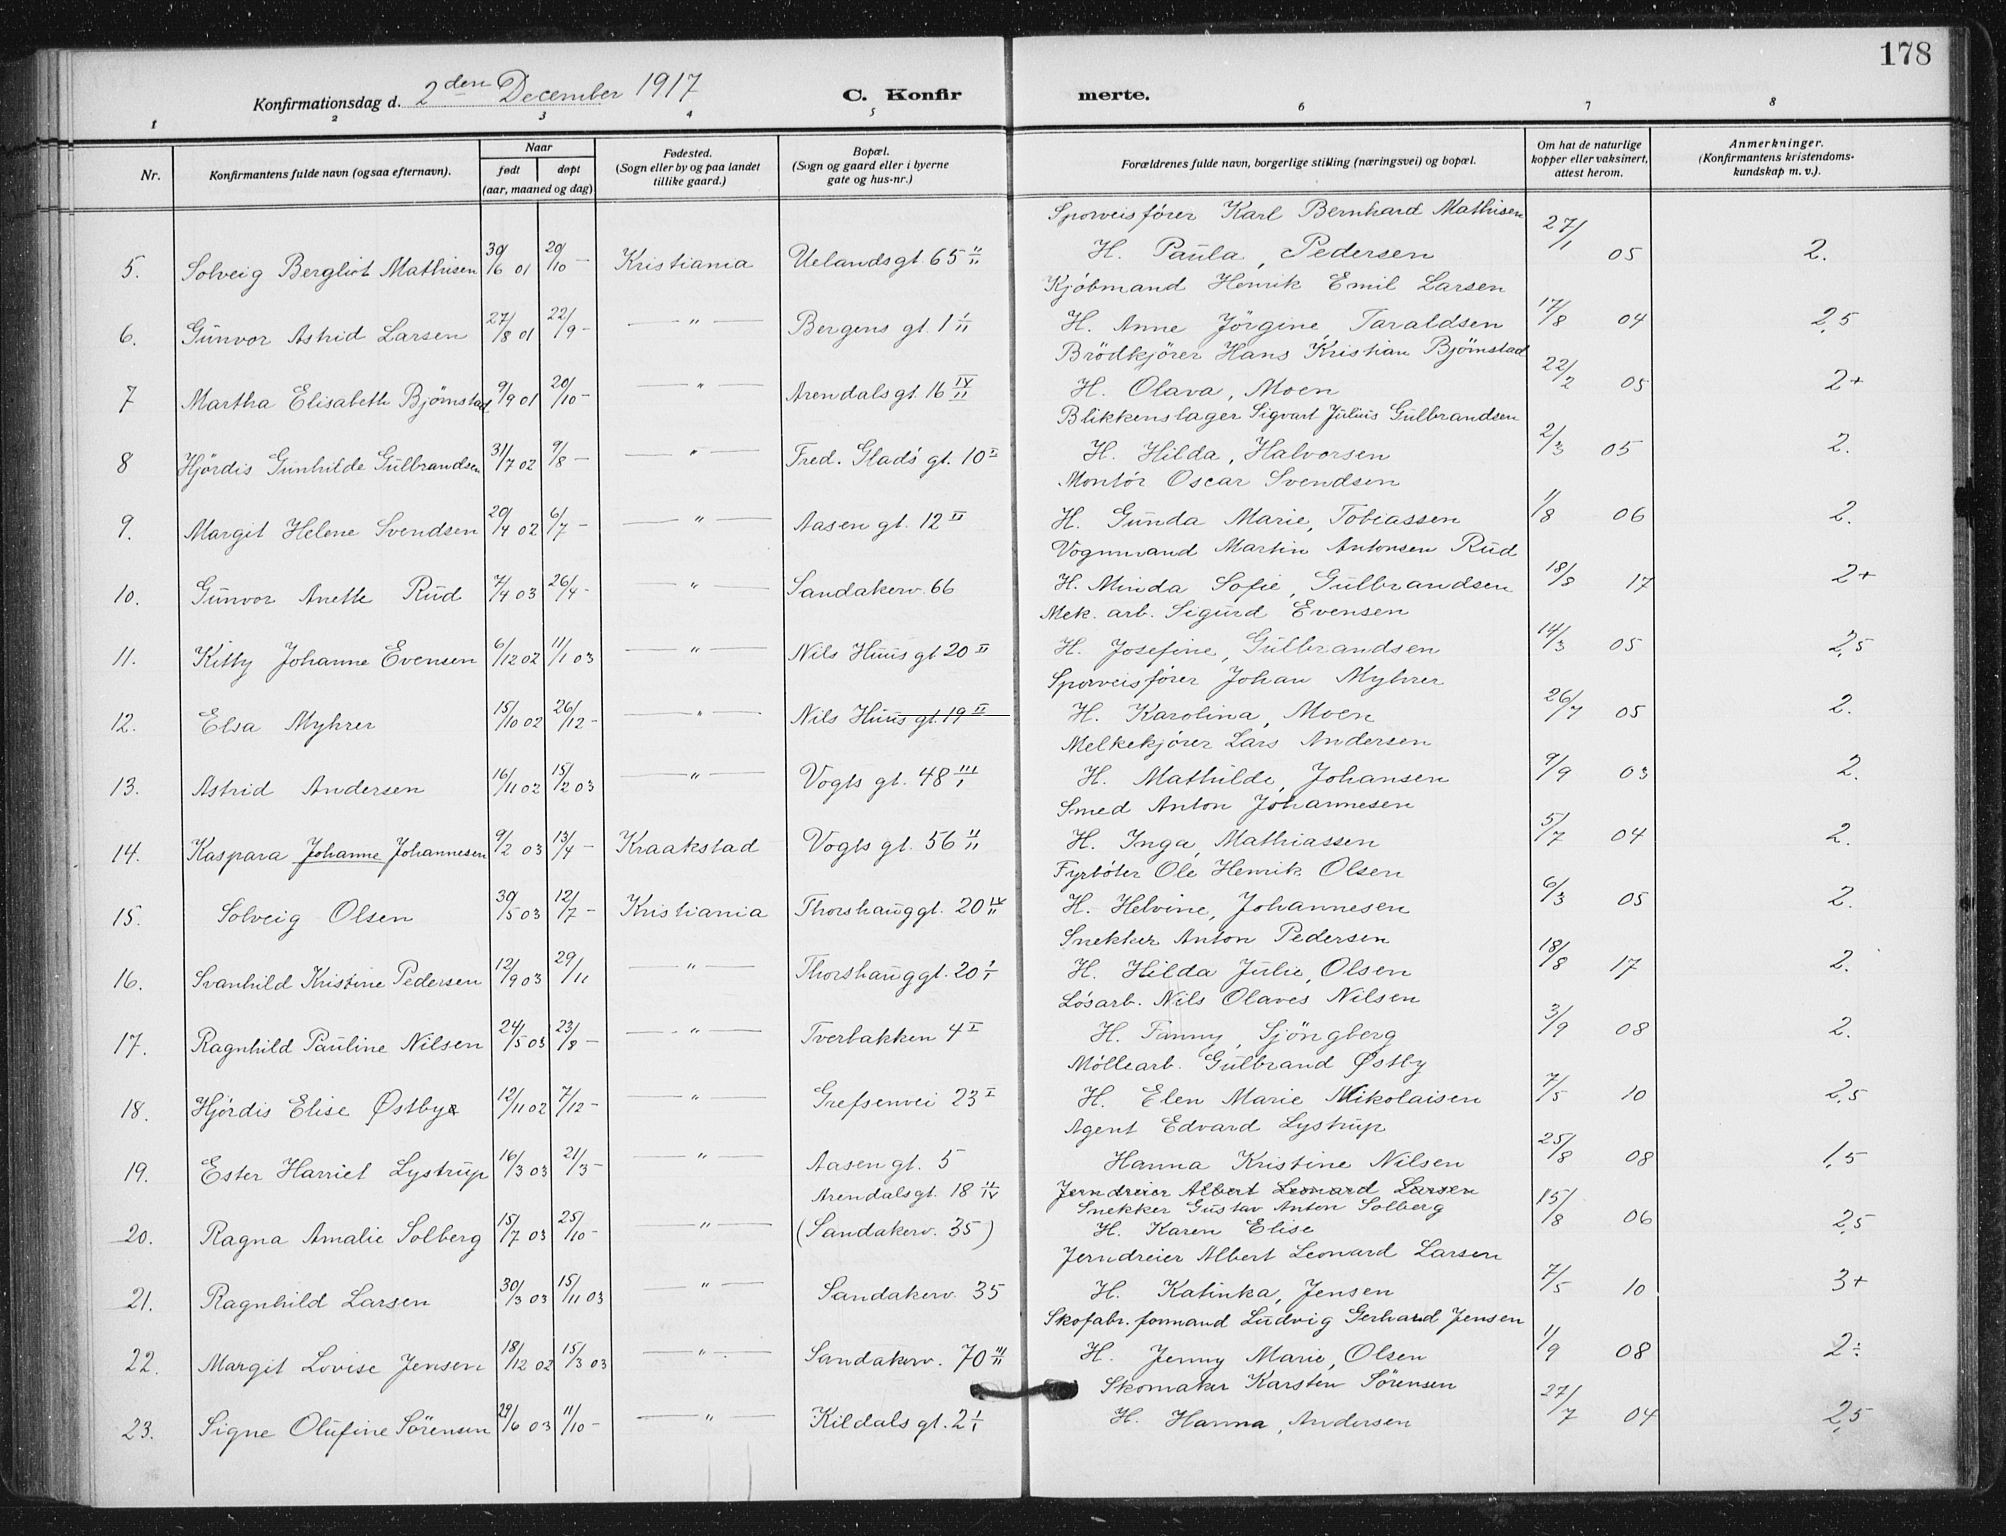 178
Konfirmationsdag d. 2den December 1917 C. Konfir merte.
1 2 3 4 5 6 7 8
Nr. Konfirmantens fulde navn (ogsaa efternavn). Naar født døpt (aar, maaned og dag) Fødested. (Sogn eller by og paa landet tillike gaard.) Bopæl. (Sogn og gaard eller i byerne gate og hus-nr.) Forældrenes fulde navn, borgerlige stilling (næringsvei) og bopæl. Om hat de naturlige kopper eller vaksinert, attest herom. Anmerkninger. (Konfirmantens kristendoms-kundskap m. v.).
Sporveisfører Karl Bernhard Mathisen
5. Solveig Bergliot Mathisen 30/6 01 20/10 — Kristiania Uelandsgt. 65 II/II H. Paula, Pedersen 27/1 05 2.
Kjøbmand Henrik Emil Larsen
6. Gunvor Astrid Larsen 27/8 01 22/9 — — " — Bergens gt. 1 I/II H. Anne Jørgine Taraldsen 17/8 04 2,5
Brödkjører Hans Kristian Bjørnstad
7 Martha Elisabeth Bjørnstad 9/9 01 20/10 — — " — Arendalsgt. 16 IV/II H. Olava, Moen 22/2 05 2+
Blikkenslager Sigvart Julius Gulbrandsen
8 Hjørdis Gunhilde Gulbrandsen 31/7 02 9/8 — — " — Fred. Glads gt. 10 I H. Hilda, Halvorsen 2/3 05 2.
Montör Oscar Svendsen
9. Margit Helene Svendsen 20/4 02 6/7 — — " — Aasen gt. 12 II H. Gunda Marie, Tobiassen 1/8 06 2.
Vognmand Martin Antonsen Rud
10. Gunvor Anette Rud 7/4 03 26/4 — — " — Sandakerv. 66 H. Minda Sofie, Gulbrandsen 18/8 17 2+
Mek. arb. Sigurd Evensen
11. Kitty Johanne Evensen 6/12 02 11/1 03 — " — Nils Huus gt 20 II H. Josefine, Gulbrandsen 14/3 05 2,5
Sporveisfører Johan Myhrer
12. Elsa Myhrer 15/10 02 26/12 — — " — Nils Huus gt. 19 II H. Karolina, Moen 26/7 05 2.
Melkekjører Lars Andersen
13. Astrid Andersen 16/11 02 15/2 03 — " — Vogts gt. 48 III/I H. Mathilde, Johansen 9/9 03 2.
Smed Anton Johannesen
14. Kaspara Johanne Johannesen 9/2 03 13/4 — Kraakstad Vogts gt. 56 II/II H. Inga, Mathiassen 5/7 04 2.
Fyrbøter Ole Henrik Olsen
15. Solveig Olsen 30/5 03 12/7 — Kristiania Thorshauggt. 20 IV/II H. Helvine, Johannesen 6/3 05 2.
Snekker Anton Pedersen
16. Svanhild Kristine Pedersen 12/9 03 29/11 — " — Thorshauggt. 20 I/I H. Hilda Julie, Olsen 18/8 17 2.
Løsarb. Nils Olaves Nilsen
17. Ragnhild Pauline Nilsen 24/5 03 23/8 — — " — Tverbakken 4 I H. Fanny, Sjöngberg 3/9 08 2.
Møllearb. Gulbrand Østby
18. Hjördis Elise Østbye 12/11 02 7/12 — — " — Grefsenvei 23 I H. Elen Marie Nikolaisen 7/5 10 2,5
Agent Edvard Lystrup
19. Ester Harriet Lystrup 16/3 03 21/3 — — " — Aasen gt. 5 Hanna Kristine Nilsen 25/8 08 1,5
Arendalsgt. 18 II/IV Jerndreier Albert Leonard Larsen
Snekker Gustav Anton Solberg
20. Ragna Amalie Solberg 15/7 03 25/10 — — " — (Sandakerv. 35) H. Karen Elise 15/8 06 2,5
Jerndreier Albert Leonard Larsen
21. Ragnhild Larsen 30/3 03 15/11 03 — " — Sandakerv. 35 H. Katinka, Jensen 7/5 10 3+
Skofabr. formand Ludvig Gerhard Jensen
22. Margit Lovise Jensen 18/12 02 15/3 03 — " — Sandakerv. 70 III/II H. Jenny Marie, Olsen 1/9 08 2÷
Skomaker Karsten Sørensen
23. Signe Olufine Sörensen 29/6 03 11/10 — — " — Kildals gt. 2 I/I H. Hanna, Andersen 27/7 04 2,5